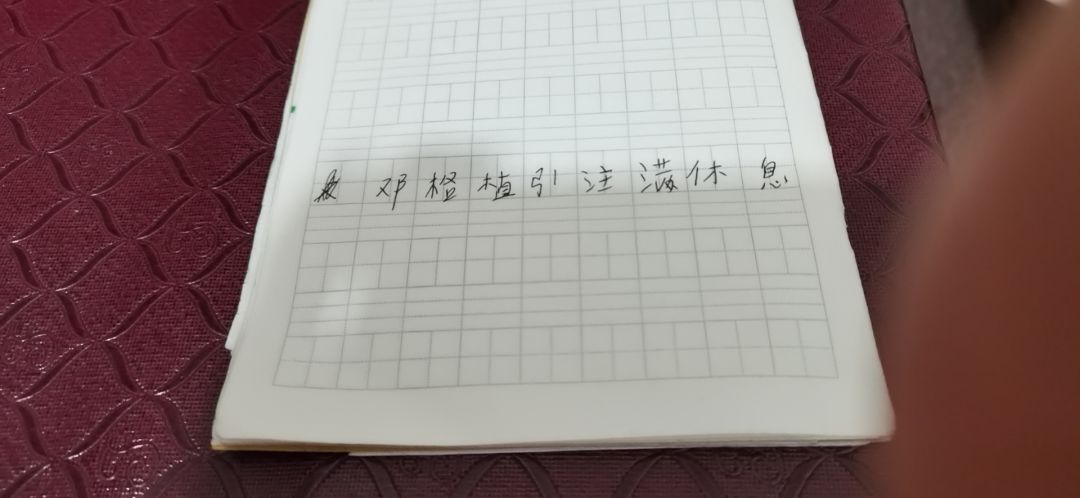 邓 格 植 引 注 满 休 息